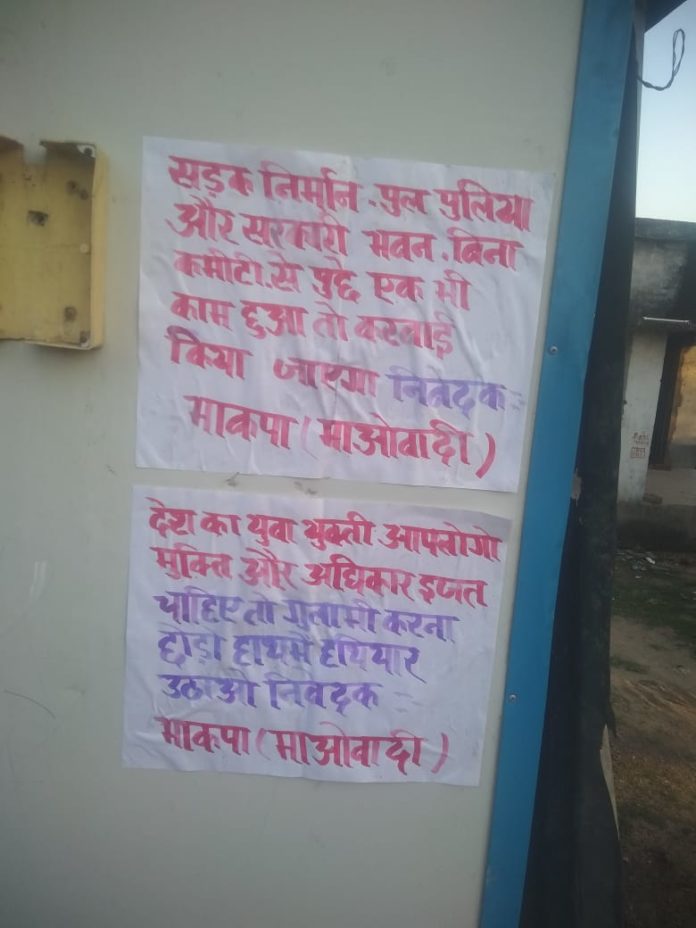 सड़क निर्मान, पुल पुलिया
और सरकारी भवन, बिना
कमीटी से पुछे एक भी
काम हुआ तो करवाई
किया जाएगा निवेदक =
माकपा (माओवादी)
देश का युवा युवती आपलोगो
मुक्ति और अधिकार इजत
चाहिए तो गुलामी करना
छोड़ो हाथमे हथियार
उठाओ निवेदक =
भाकपा (माओवादी)